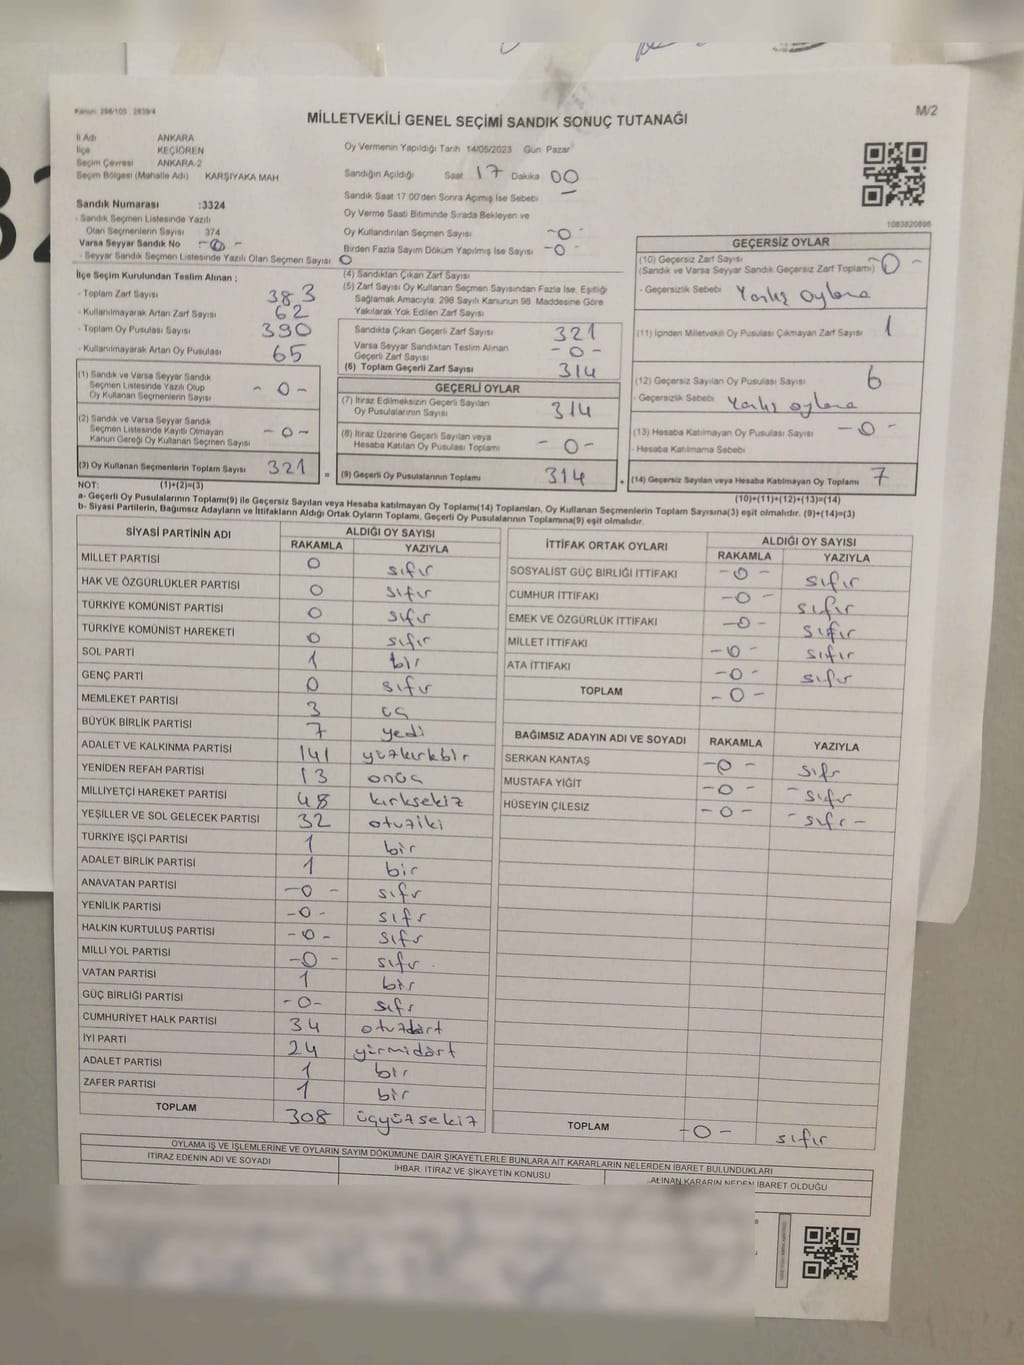 Kanun: 298/105 , 2839/4
M/2
MİLLETVEKİLİ GENEL SEÇİMİ SANDIK SONUÇ TUTANAĞI
İl Adı ANKARA
İlçe KEÇİÖREN
Seçim Çevresi ANKARA-2
Seçim Bölgesi (Mahalle Adı) KARŞIYAKA MAH
Sandık Numarası :3324
- Sandık Seçmen Listesinde Yazılı
Olan Seçmenlerin Sayısı 374
Varsa Seyyar Sandık No -0-
- Seyyar Sandık Seçmen Listesinde Yazılı Olan Seçmen Sayısı 0
İlçe Seçim Kurulundan Teslim Alınan ;
- Toplam Zarf Sayısı 383
- Kullanılmayarak Artan Zarf Sayısı 62
- Toplam Oy Pusulası Sayısı 390
- Kullanılmayarak Artan Oy Pusulası 65
(1) Sandık ve Varsa Seyyar Sandık
Seçmen Listesinde Yazılı Olup
Oy Kullanan Seçmenlerin Sayısı -0-
(2) Sandık ve Varsa Seyyar Sandık
Seçmen Listesinde Kayıtlı Olmayan
Kanun Gereği Oy Kullanan Seçmen Sayısı -0-
(3) Oy Kullanan Seçmenlerin Toplam Sayısı 321
Oy Vermenin Yapıldığı Tarih 14/05/2023 Gün Pazar
Sandığın Açıldığı Saat 17 Dakika 00
Sandık Saat 17 00'den Sonra Açımış İse Sebebi
Oy Verme Saati Bitiminde Sırada Bekleyen ve
Oy Kullandırılan Seçmen Sayısı -0-
Birden Fazla Sayım Döküm Yapılmış İse Sayısı -0-
(4) Sandıktan Çıkan Zarf Sayısı
(5) Zarf Sayısı Oy Kullanan Seçmen Sayısından Fazla İse, Eşitliği
Sağlamak Amacıyla, 298 Sayılı Kanunun 98. Maddesine Göre
Yakılarak Yok Edilen Zarf Sayısı
Sandıkta Çıkan Geçerli Zarf Sayısı 321
Varsa Seyyar Sandıktan Teslim Alınan
Geçerli Zarf Sayısı -0-
(6) Toplam Geçerli Zarf Sayısı 314
GEÇERLİ OYLAR
(7) İtiraz Edilmeksizin Geçerli Sayılan
Oy Pusulalarının Sayısı 314
(8) İtiraz Üzerine Geçerli Sayılan veya
Hesaba Katılan Oy Pusulası Toplamı -0-
= (9) Geçerli Oy Pusulalarının Toplamı 314
1083820898
GEÇERSİZ OYLAR
(10) Geçersiz Zarf Sayısı
(Sandık ve Varsa Seyyar Sandık Geçersiz Zarf Toplamı) -0-
- Geçersizlik Sebebi
(11) İçinden Milletvekili Oy Pusulası Çıkmayan Zarf Sayısı 1
(12) Geçersiz Sayılan Oy Pusulası Sayısı 6
- Geçersizlik Sebebi
(13) Hesaba Katılmayan Oy Pusulası Sayısı -0-
- Hesaba Katılmama Sebebi
+ (14) Geçersiz Sayılan veya Hesaba Katılmayan Oy Toplamı 7
NOT: (1)+(2)=(3) (10)+(11)+(12)+(13)=(14)
a- Geçerli Oy Pusulalarının Toplamı(9) ile Geçersiz Sayılan veya Hesaba katılmayan Oy Toplamı(14) Toplamları, Oy Kullanan Seçmenlerin Toplam Sayısına(3) eşit olmalıdır. (9)+(14)=(3)
b- Siyasi Partilerin, Bağımsız Adayların ve İttifakların Aldığı Ortak Oyların Toplamı, Geçerli Oy Pusulalarının Toplamına(9) eşit olmalıdır.
SİYASİ PARTİNİN ADI ALDIĞI OY SAYISI
RAKAMLA YAZIYLA
MİLLET PARTİSİ 0 sıfır
HAK VE ÖZGÜRLÜKLER PARTİSİ 0 sıfır
TÜRKİYE KOMÜNİST PARTİSİ 0 sıfır
TÜRKİYE KOMÜNİST HAREKETİ 0 sıfır
SOL PARTİ 1 bir
GENÇ PARTİ 0 sıfır
MEMLEKET PARTİSİ 3 üç
BÜYÜK BİRLİK PARTİSİ 7 yedi
ADALET VE KALKINMA PARTİSİ 141 yüzkırkbir
YENİDEN REFAH PARTİSİ 13 onüç
MİLLİYETÇİ HAREKET PARTİSİ 48 kırksekiz
YEŞİLLER VE SOL GELECEK PARTİSİ 32 otuziki
TÜRKİYE İŞÇİ PARTİSİ 1 bir
ADALET BİRLİK PARTİSİ 1 bir
ANAVATAN PARTİSİ -0- sıfır
YENİLİK PARTİSİ -0- sıfır
HALKIN KURTULUŞ PARTİSİ -0- sıfır
MİLLİ YOL PARTİSİ -0- sıfır
VATAN PARTİSİ 1 bir
GÜÇ BİRLİĞİ PARTİSİ -0- sıfır
CUMHURİYET HALK PARTİSİ 34 otuzdört
İYİ PARTİ 24 yirmidört
ADALET PARTİSİ 1 bir
ZAFER PARTİSİ 1 bir
TOPLAM 308 üçyüzsekiz
İTTİFAK ORTAK OYLARI ALDIĞI OY SAYISI
RAKAMLA YAZIYLA
SOSYALİST GÜÇ BİRLİĞİ İTTİFAKI -0- sıfır
CUMHUR İTTİFAKI -0- sıfır
EMEK VE ÖZGÜRLÜK İTTİFAKI -0- sıfır
MİLLET İTTİFAKI -0- sıfır
ATA İTTİFAKI -0- sıfır
TOPLAM -0-
BAĞIMSIZ ADAYIN ADI VE SOYADI RAKAMLA YAZIYLA
SERKAN KANTAŞ -0- sıfır
MUSTAFA YİĞİT -0- -sıfır
HÜSEYİN ÇİLESİZ -0- -sıfır-
TOPLAM -0- sıfır
OYLAMA İŞ VE İŞLEMLERİNE VE OYLARIN SAYIM DÖKÜMÜNE DAİR ŞİKAYETLERLE BUNLARA AİT KARARLARIN NELERDEN İBARET BULUNDUKLARI
İTİRAZ EDENİN ADI VE SOYADI İHBAR, İTİRAZ VE ŞİKAYETİN KONUSU ALINAN KARARIN NEDEN İBARET OLDUĞU